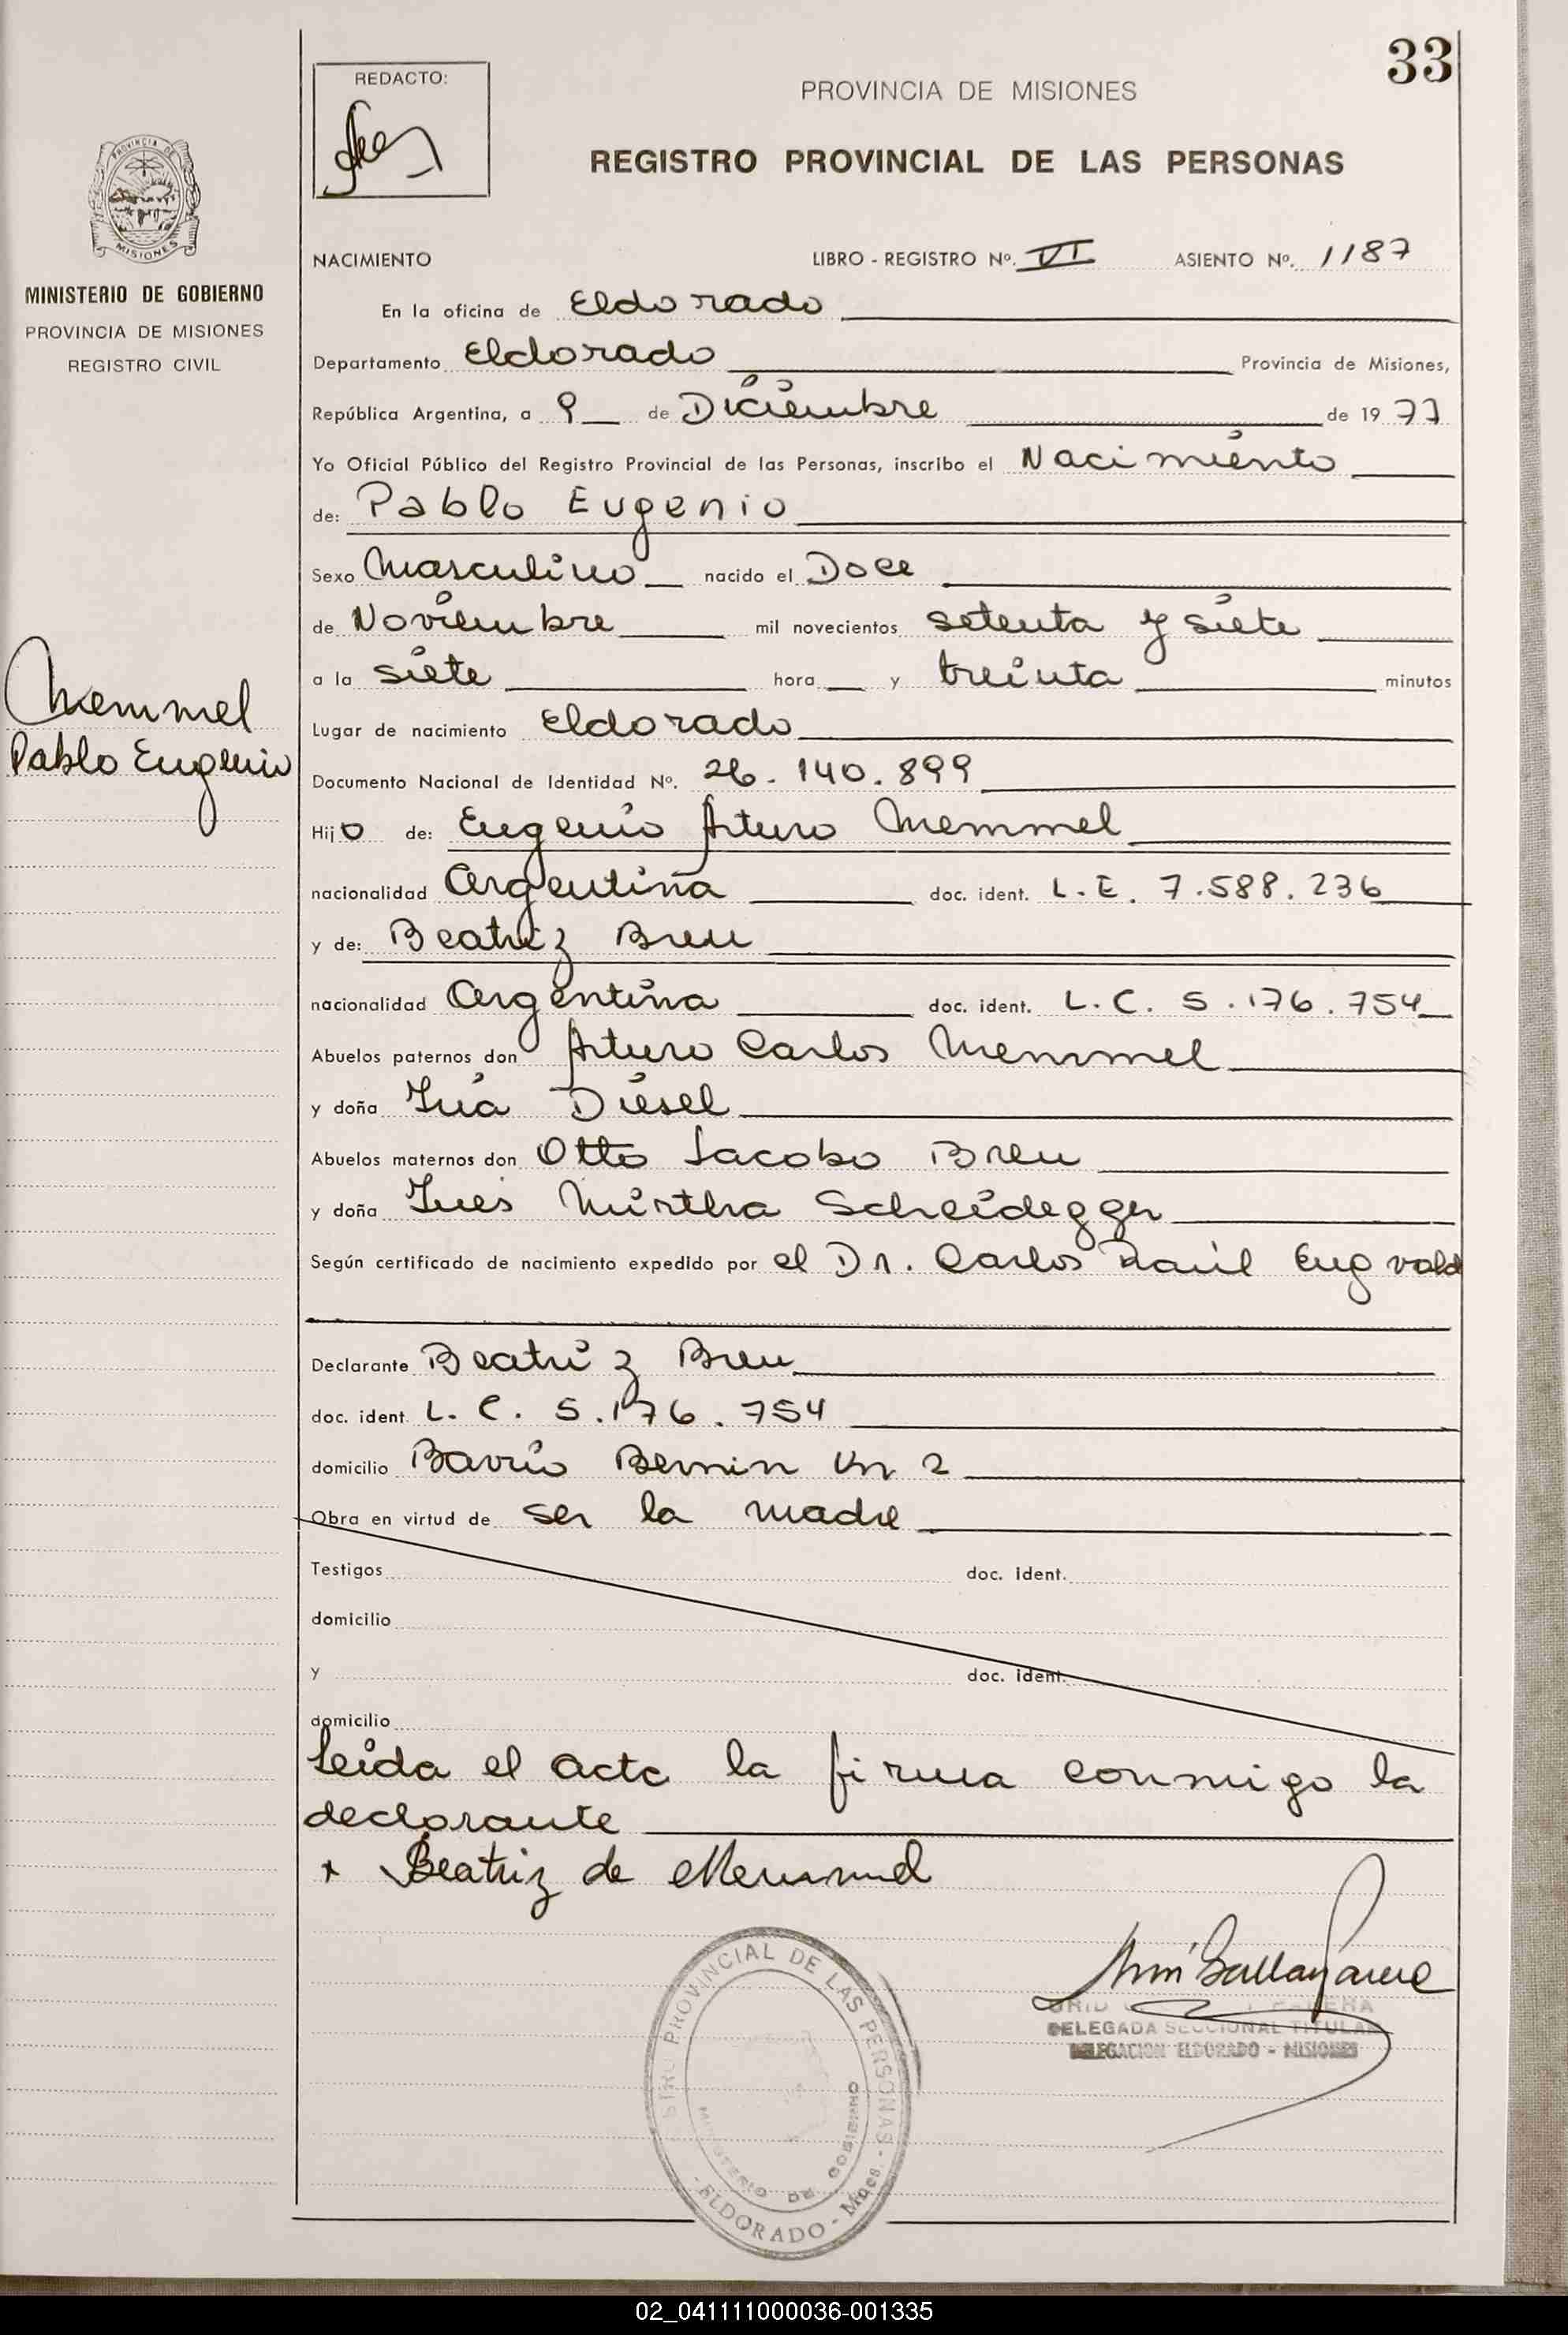 33
REDACTO:
PROVINCIA DE MISIONES
REGISTRO PROVINCIAL DE LAS PERSONAS
PROVINCIA DE
MISIONES
MINISTERIO DE GOBIERNO
PROVINCIA DE MISIONES
REGISTRO CIVIL
Memmel
Pablo Eugenio
NACIMIENTO LIBRO - REGISTRO Nº. VI ASIENTO Nº. 1187
En la oficina de Eldorado
Departamento Eldorado Provincia de Misiones,
República Argentina, a 9 de Diciembre de 19 77
Yo Oficial Público del Registro Provincial de las Personas, inscribo el Nacimiento
de: Pablo Eugenio
Sexo Masculino nacido el Doce
de Noviembre mil novecientos setenta y siete
a la siete hora y treinta minutos
Lugar de nacimiento Eldorado
Documento Nacional de Identidad Nº. 26.140.899
Hijo de: Eugenio Arturo Memmel
nacionalidad Argentina doc. ident. L.E. 7.588.236
y de: Beatriz Breu
nacionalidad Argentina doc. ident. L.C. 5.176.754
Abuelos paternos don Arturo Carlos Memmel
y doña Diesel
Abuelos maternos don Otto Jacobo Breu
y doña Ines Mirtha Scheidegger
Según certificado de nacimiento expedido por el Dr. Carlos Raúl Engvald
Declarante Beatriz Breu
doc. ident. L.C. 5.176.754
domicilio Barrio Km 2
Obra en virtud de ser la madre
Testigos doc. ident.
domicilio
y doc. ident.
domicilio
Leida el acta la firma conmigo la
declarante
x Beatriz de Memmel
PROVINCIAL DE LAS PERSONAS
MINISTERIO DE GOBIERNO
- ELDORADO - Mnes. -
DELEGADA SECCIONAL TITULAR
DELEGACION ELDORADO - MISIONES
02_041111000036-001335